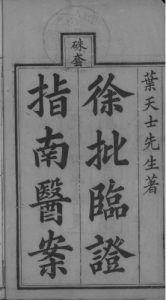 硃套
葉天士先生著
徐批臨證
指南醫案